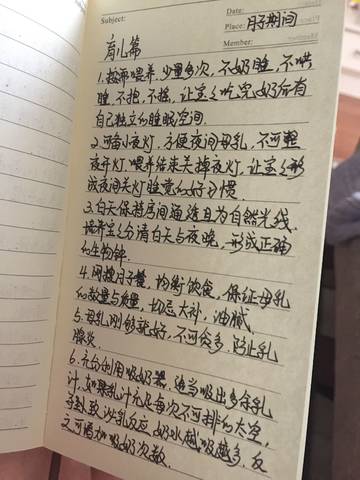 Subject:
Date:
Place: 月子期间
Member:
育儿篇
1.按需喂养,少量多次,不奶睡,不哄
睡,不抱,不摇,让宝宝吃完奶后有
自己独立的睡眠空间.
2.可备小夜灯.方便夜间母乳,不可整
夜开灯.喂养结束关掉夜灯.让宝宝形
成夜间关灯睡觉的好习惯.
3.白天保持房间通透且为自然光线.
培养宝宝分清白天与夜晚,形成正确
的生物钟.
4.网搜月子餐,均衡饮食,保证母乳
的数量与质量,切忌大补,油腻.
5.母乳刚够就好,不可贪多,防止乳
腺炎.
6.充分利用吸奶器,适当吸出多余乳
汁.如果乳汁充足每次不可排的太空,
否则致涉乳反应.奶水越吸越多.反
之可增加吸奶次数.